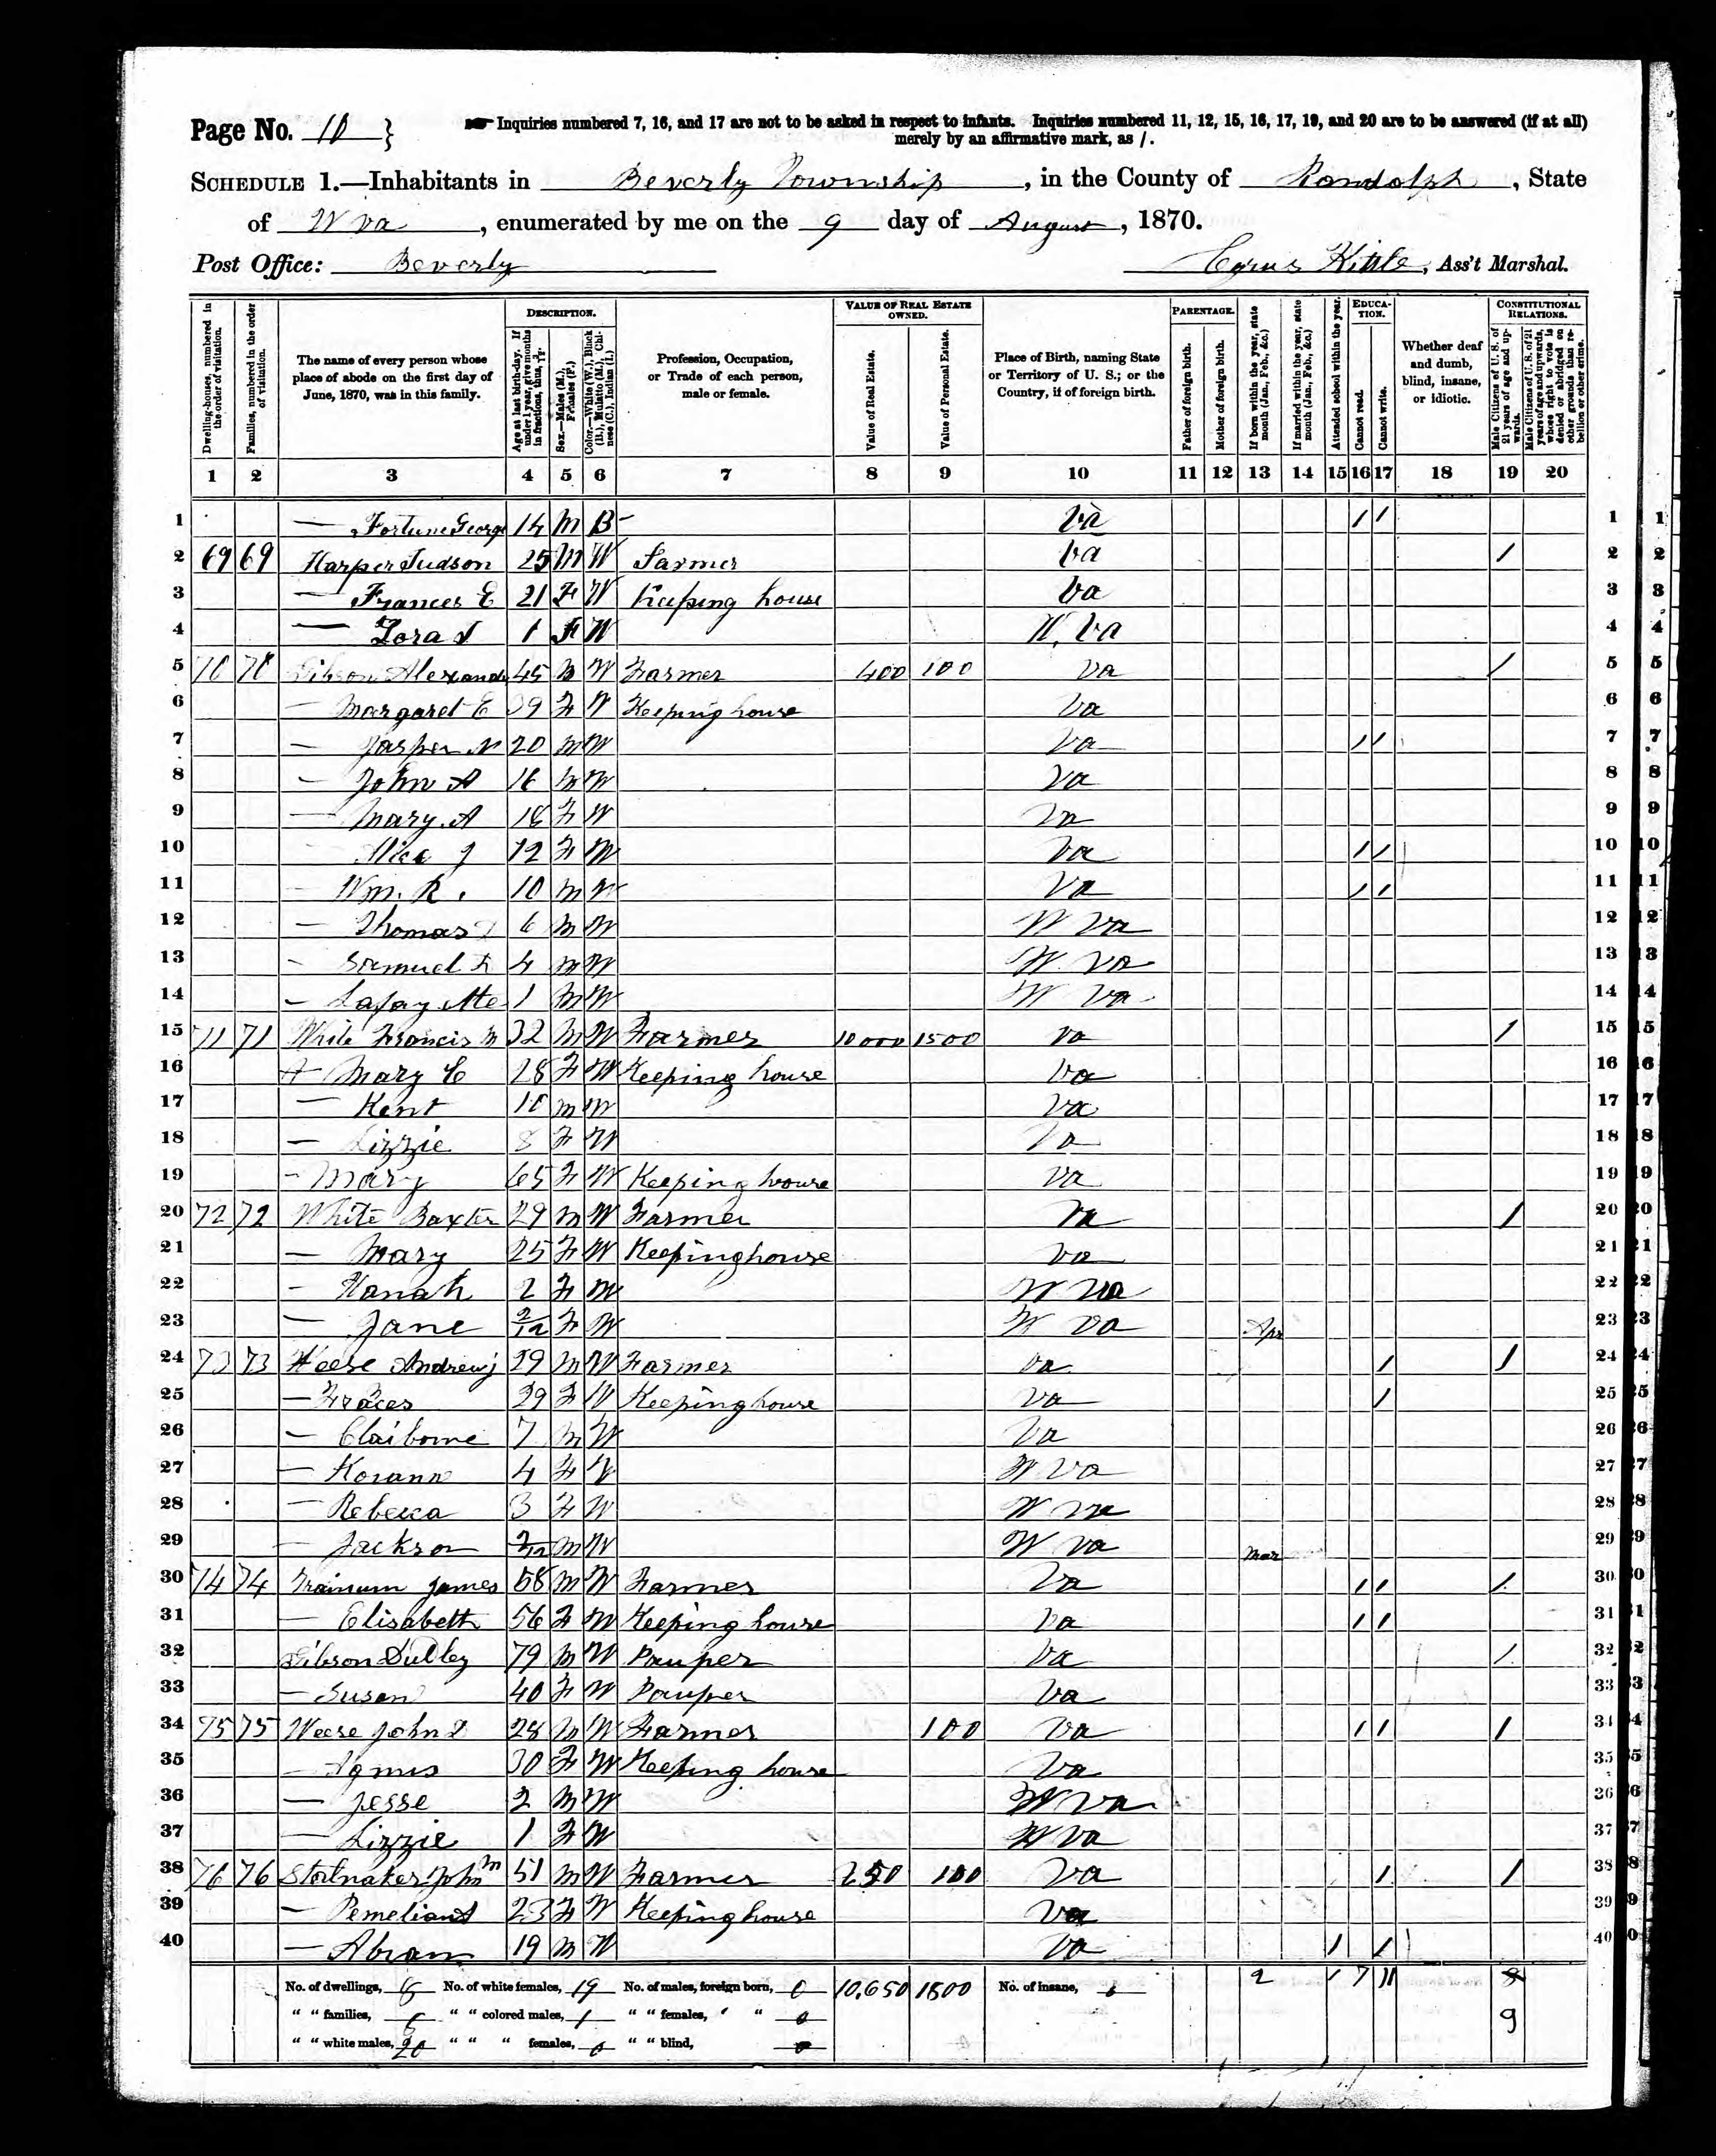 Page No. 10 }
Inquiries numbered 7, 16, and 17 are not to be asked in respect to infants. Inquiries numbered 11, 12, 15, 16, 17, 19, and 20 are to be answered (if at all)
merely by an affirmative mark, as /.
SCHEDULE 1.—Inhabitants in Beverly Township, in the County of Randolph, State
of W va, enumerated by me on the 9 day of August, 1870.
Post Office: Beverly
Cyrus Kittle, Ass't Marshal.
Dwelling-houses, numbered in the order of visitation.
Families, numbered in the order of visitation.
The name of every person whose place of abode on the first day of June, 1870, was in this family.
DESCRIPTION.
Age at last birth-day. If under 1 year, give months in fractions, thus, 3/12.
Sex.—Males (M.), Females (F.)
Color.—White (W.), Black (B.), Mulatto (M.), Chinese (C.), Indian (I.)
Profession, Occupation, or Trade of each person, male or female.
VALUE OF REAL ESTATE OWNED.
Value of Real Estate.
Value of Personal Estate.
Place of Birth, naming State or Territory of U. S.; or the Country, if of foreign birth.
PARENTAGE.
Father of foreign birth.
Mother of foreign birth.
If born within the year, state month (Jan., Feb., &c.)
If married within the year, state month (Jan., Feb., &c.)
Attended school within the year.
EDUCATION.
Cannot read.
Cannot write.
Whether deaf and dumb, blind, insane, or idiotic.
CONSTITUTIONAL RELATIONS.
Male Citizens of U. S. of 21 years of age and upwards.
Male Citizens of U. S. of 21 years of age and upwards, whose right to vote is denied or abridged on other grounds than rebellion or other crime.
1 2 3 4 5 6 7 8 9 10 11 12 13 14 15 16 17 18 19 20
1 — Fortune George 14 M B Va / / 1
2 69 69 Harper Judson 25 M W Farmer Va / 2
3 — Frances E 21 F W Keeping house Va 3
4 — Zora 1 F W W. Va 4
5 70 70 Gibson Alexand 45 M W Farmer 400 100 Va / 5
6 — Margaret E 39 F W Keeping house Va 6
7 — Jasper N 20 M W Va / / 7
8 — John A 16 M W Va 8
9 — Mary A 18 F W Va 9
10 — Alice J 12 F W Va / / 10
11 — Wm. R. 10 M W Va / / 11
12 — Thomas 6 M W W Va 12
13 — Samuel 4 M W W. Va 13
14 — Lafayette 1 M W W Va 14
15 71 71 White Francis M 32 M W Farmer 10000 1500 Va / 15
16 — Mary C 28 F W Keeping house Va 16
17 — Kent 10 M W Va 17
18 — Lizzie 8 F W Va 18
19 — Mary 65 F W Keeping house Va 19
20 72 72 White Baxter 29 M W Farmer Va / 20
21 — Mary 25 F W Keeping house Va 21
22 — Hanah 2 F W W Va 22
23 — Jane 2/12 F W W Va Apr 23
24 73 73 Weese Andrew J 29 M W Farmer Va / / 24
25 — Fraces 29 F W Keeping house Va / 25
26 — Claiborne 7 M W Va 26
27 — 4 F W W Va 27
28 — Rebecca 3 F W W Va 28
29 — Jackson 2/12 M W W Va Mar 29
30 74 74 Trainum James 58 M W Farmer Va / / / 30
31 — Elisabeth 56 F W Keeping house Va / / 31
32 Gibson Dudley 79 M W Pauper Va / 32
33 — Susan 40 F W Pauper Va 33
34 75 75 Weese John 28 M W Farmer 100 Va / / / 34
35 — Agnes 30 F W Keeping house Va 35
36 — Jesse 2 M W W Va 36
37 — Lizzie 1 F W W Va 37
38 76 76 Stalnaker John M 51 M W Farmer 250 100 Va / / 38
39 — 23 F W Keeping house Va 39
40 — Abram 19 M W Va / / 40
No. of dwellings, No. of white females, 19 No. of males, foreign born, 0 10,650 1800 No. of insane, 2 / 7 11 8
" " families, " " colored males, 1 " " females, " " 0 9
" " white males, 20 " " " females, 0 " " blind, 0